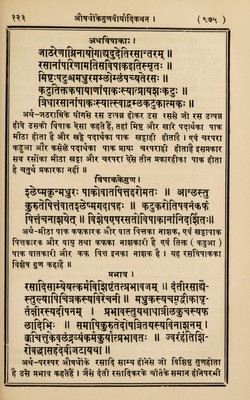 १२३ औषधोंकेगुणवीर्यादिकथन। (९७५)
अथविपाकाः।
जाठरेणाग्निनायोगाद्यदुदेतिरसान्तरम् ॥
रसानांपरिणामांतेसविपाकइतिस्मृतः ॥
मिष्टःपटुश्चमधुरमम्लोम्लंपच्यतेरसः ॥
कटुतिक्तकषायाणांपाकःस्यात्प्रायशःकटुः ॥
त्रिधारसानांपाकःस्यात्स्वाद्वम्लकटुकात्मकः ॥
अर्थ-जठराग्निके योगसे रस उत्पन्न होकर उस रससे जो रस उत्पन्न
होवे उसको विपाक ऐसा कहते हैं, तहां मिष्ट और खारे पदार्थका पाक
मीठा होता है और खट्टे पदार्थका पाक खट्टा होता है । एवं चरपरा
कडुआ और कसैले पदार्थका पाक प्रायः चरपराही होताहै इसप्रकार
सब रसोंका मीठा खट्टा और चरपरा ऐसे तीन प्रकारहीका पाक होता
है चतुर्थ प्रकारका नहीं ॥
विपाककेगुण।
श्लेष्मकृन्मधुरः पाकोवातपित्तहरोमतः ॥ आम्लस्तु
कुरुतेपित्तंवातश्लेष्मगदापहः ॥ कटुकरोतिपवनंकफं
पित्तंचनाशयेत् ॥ विशेषएषरसतोविपाकानांनिदर्शितः॥
अर्थ-मीठा पाक कफकारक और वात पित्तका नाशक, एवं खट्टापाक
पित्तकारक और वायु तथा कफका नाशकारी है एवं तिक्त (कडुआ)
पाक वातकारी और कफ पित्त इनका नाशक है । यह रसविपाकका
विशेष गुण कहाहै ॥
प्रभाव।
रसादिसाम्येयत्कर्मविशिष्टंतत्प्रभावजम् ॥ दंतीरसाद्यै
स्तुल्यापिचित्रकस्यविरेचनी ॥ मधुकस्यचमृद्वीकाघृ-
तंक्षीरस्यदीपनम् ॥ प्रभावस्तुयथाधात्रीलकुचस्यफ-
लादिभिः ॥ समापिकुरुतेदोषत्रितयस्यविनाशनम् ॥
क्वचित्तुकेवलंद्रव्यंकर्मकुर्यात्प्रभावतः ॥ ज्वरंहंतिशि-
रोबद्धासहदेवीजटायथा ॥
अर्थ-परस्पर औषधोंके रसादि साम्य हीनेसे जो विशिष्ट गुणहोता
है उसे प्रभाव कहतेहैं । जैसे दंती रसादिकरके चीतेके समान होनेपरभी